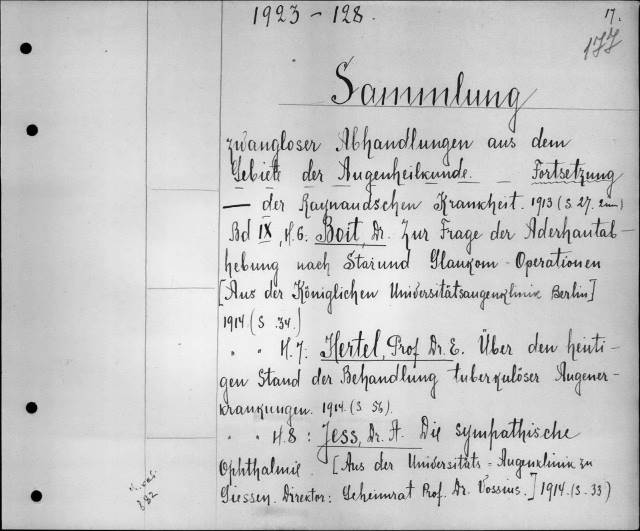 1923 - 128.
17.
177
Sammlung
zwangloser Abhandlungen aus dem
Gebiete der Augenheilkunde. _ Fortsetzung
— der Raynaudschen Krankheit. 1913 (S 27.
Bd IX, H. 6. Boit, Dr. Zur Frage der Aderhautab-
hebung nach Starund Glaukom - Operationen
[Aus der Königlichen Universitätsaugenklinik Berlin]
1914. (S. 34.)
" " H. 7. Hertel, Prof Dr. E. Über den heuti-
gen Stand der Behandlung tuberkulöser Augener-
krankungen. 1914. (S 56).
" " H. 8 : Jess, Dr. A. Die sympathische
Ophthalmie. [Aus der Universitäts - Augenklinik zu
Giessen. Direktor: Geheimrat Prof. Dr. Vossius.] 1914. (S. 33)
882